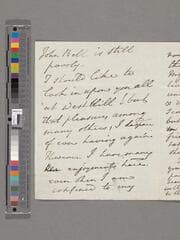 John Bell is still
poorly.
I should like to
look in upon you all
at West Hill, but
that pleasure among
many others, I despair
of ever having again
I have many
enjoyments here
even then I am
confined to my